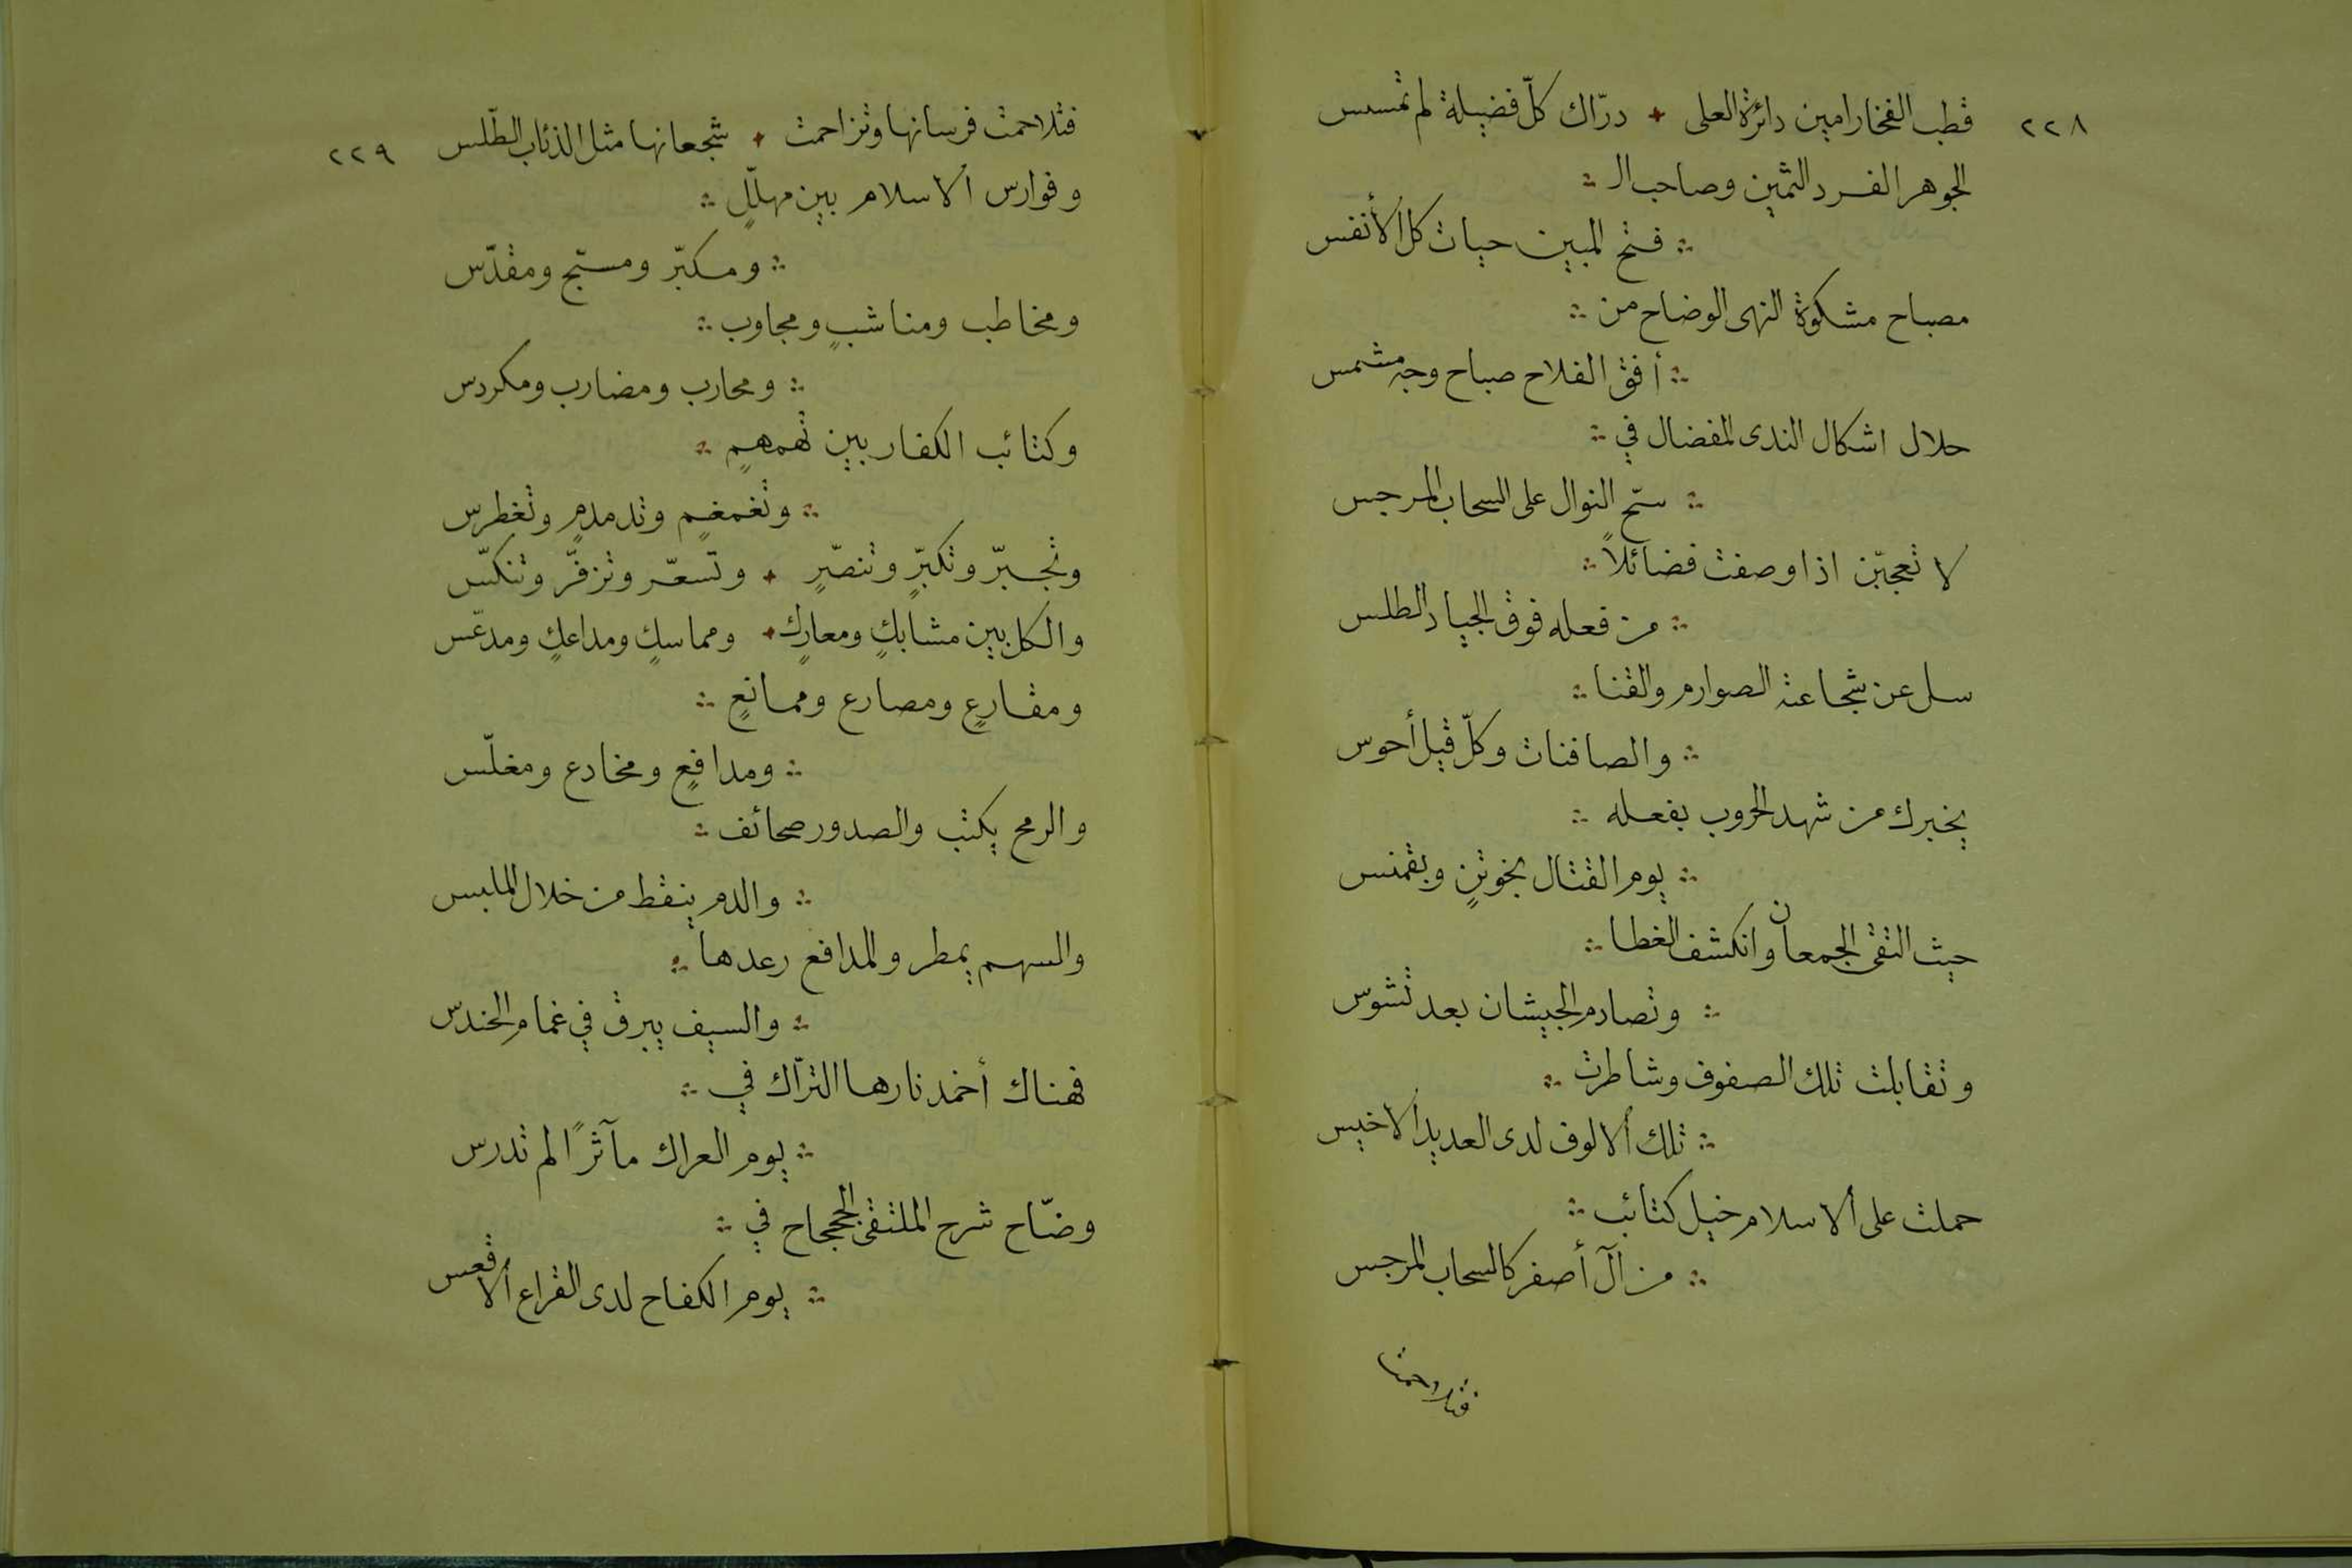 ٢٢٨
قطب الفخار امين دائرة العلى + درّاك كلّ فضيلة لم تمسس
الجوهر الفرد الثمين وصاحب الـ ∴
∴ فتح المبين حيات كل الأنفس
مصباح مشكوة النهى الوضاح من ∴
∴ أفق الفلاح صباح وجه مشمس
حلال اشكال الندى المفضال في ∴
∴ سحّ النوال على السحاب المرجس
لا تعجبّن اذا وصفت فضائلاً ∴
∴ من فعله فوق الجياد الطلس
سل عن شجاعته الصوارم والقنا ∴
∴ والصافنات وكلّ قيل أحوس
يخبرك من شهد الحروب بفعله ∴
∴ يوم القتال بخوتنٍ وبقمنس
حيث التقى الجمعان وانكشف الغطا ∴
∴ وتصادم الجيشان بعد تشوس
وتقابلت تلك الصفوف وشاطرت ∴
∴ تلك ألالوف لدى العديد ألاخيس
حملت على ألاسلام خيل كتائب ∴
∴ من آل أصفر كالسحاب المرجس
فتلاحمت
٢٢٩
فتلاحمت فرسانها وتزاحمت + شجعانها مثل الذئاب الطّلس
وفوارس ألاسلام بين مهلّلٍ ∴
∴ ومكبّر ومسبّح ومقدّس
ومخاطب ومناشبٍ ومجاوب ∴
∴ ومحارب ومضارب ومكردس
وكتائب الكفار بين تهمهمٍ ∴
∴ وتغمغمٍ وتدمدمٍ وتغطرس
وتجبّر وتكبّرٍ وتنصّرٍ + وتسعّر وتزفّر وتنكّس
والكل بين مشابكٍ ومعاركٍ + ومماسكٍ ومداعكٍ ومدعّس
ومقارعٍ ومصارع وممانعٍ ∴
∴ ومدافعٍ ومخادع ومغلّس
والرمح يكتب والصدور صحائف ∴
∴ والدم ينقط من خلال الملبس
والسهم يمطر والمدافع رعدها ∴
∴ والسيف يبرق في غمام الحندس
فهناك أخمد نارها الترّاك في ∴
∴ يوم العراك مآثرًا لم تدرس
وضّاح شرح الملتقى الجحجاح في ∴
∴ يوم الكفاح لدى القراع ألاقعس